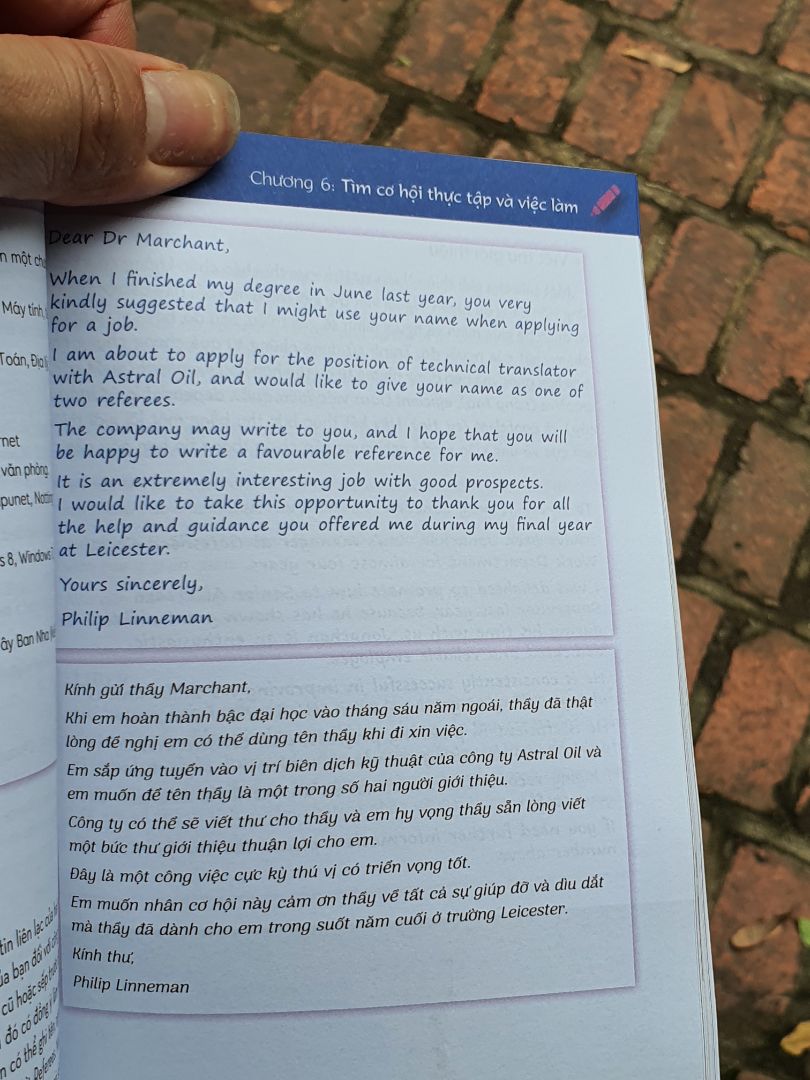 Chương 6: Tìm cơ hội thực tập và việc làm
Dear Dr Marchant,
When I finished my degree in June last year, you very
kindly suggested that I might use your name when applying
for a job.
I am about to apply for the position of technical translator
with Astral Oil, and would like to give your name as one of
two referees.
The company may write to you, and I hope that you will
be happy to write a favourable reference for me.
It is an extremely interesting job with good prospects.
I would like to take this opportunity to thank you for all
the help and guidance you offered me during my final year
at Leicester.
Yours sincerely,
Philip Linneman
Kính gửi thầy Marchant,
Khi em hoàn thành bậc đại học vào tháng sáu năm ngoái, thầy đã thật
lòng đề nghị em có thể dùng tên thầy khi đi xin việc.
Em sắp ứng tuyển vào vị trí biên dịch kỹ thuật của công ty Astral Oil và
em muốn để tên thầy là một trong số hai người giới thiệu.
Công ty có thể sẽ viết thư cho thầy và em hy vọng thầy sẵn lòng viết
một bức thư giới thiệu thuận lợi cho em.
Đây là một công việc cực kỳ thú vị có triển vọng tốt.
Em muốn nhân cơ hội này cảm ơn thầy về tất cả sự giúp đỡ và dìu dắt
mà thầy đã dành cho em trong suốt năm cuối ở trường Leicester.
Kính thư,
Philip Linneman
một
Máy tính,
Toán,
văn phòng
s 8, Windows
ây Ban Nha
tin liên lạc của
ủa bạn đối với
cũ hoặc sếp
đó có đồng ý
n có thể ghi